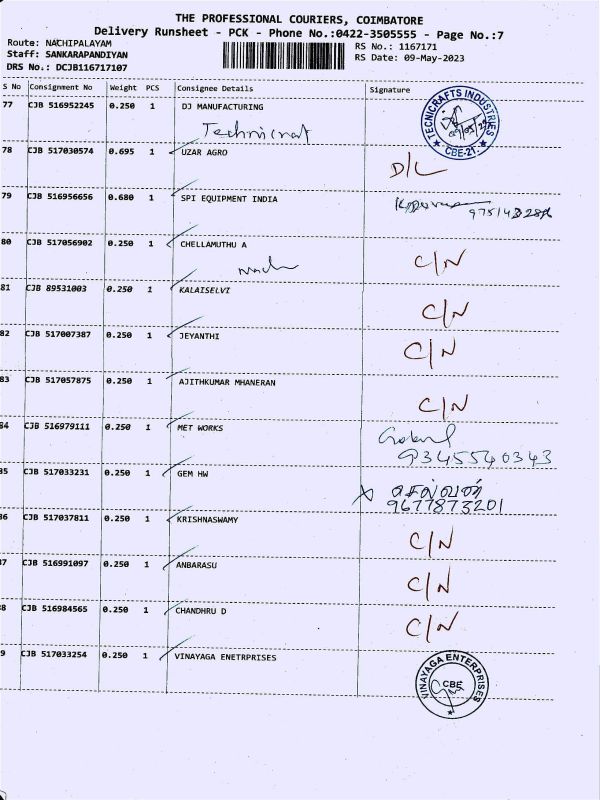 THE PROFESSIONAL COURIERS, COIMBATORE
Delivery Runsheet - PCK - Phone No.:0422-3505555 - Page No.:7
Route: NACHIPALAYAM
Staff: SANKARAPANDIYAN
DRS No.: DCJB116717107
RS No.: 1167171
RS Date: 09-May-2023
S No Consignment No Weight PCS Consignee Details Signature
77 CJB 516952245 0.250 1 DJ MANUFACTURING
TECNICRAFTS INDUSTRIES
CBE-21.
78 CJB 517030574 0.695 1 UZAR AGRO
D/L
79 CJB 516956656 0.680 1 SPI EQUIPMENT INDIA
80 CJB 517056902 0.250 1 CHELLAMUTHU A
C/N
81 CJB 89531003 0.250 1 KALAISELVI
C/N
82 CJB 517007387 0.250 1 JEYANTHI
C/N
83 CJB 517057875 0.250 1 AJITHKUMAR MHANERAN
C/N
84 CJB 516979111 0.250 1 MET WORKS
9345540343
85 CJB 517033231 0.250 1 GEM HW
செல்வன்
9677873201
86 CJB 517037811 0.250 1 KRISHNASWAMY
C/N
87 CJB 516991097 0.250 1 ANBARASU
C/N
88 CJB 516984565 0.250 1 CHANDHRU D
C/N
9 CJB 517033254 0.250 1 VINAYAGA ENETRPRISES
VINAYAGA ENTERPRISES
CBE